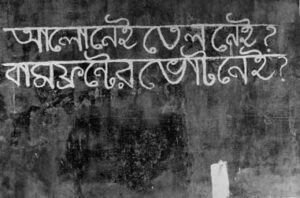 আলো নেই তেল নেই?
বামফ্রন্টের ভোট নেই?